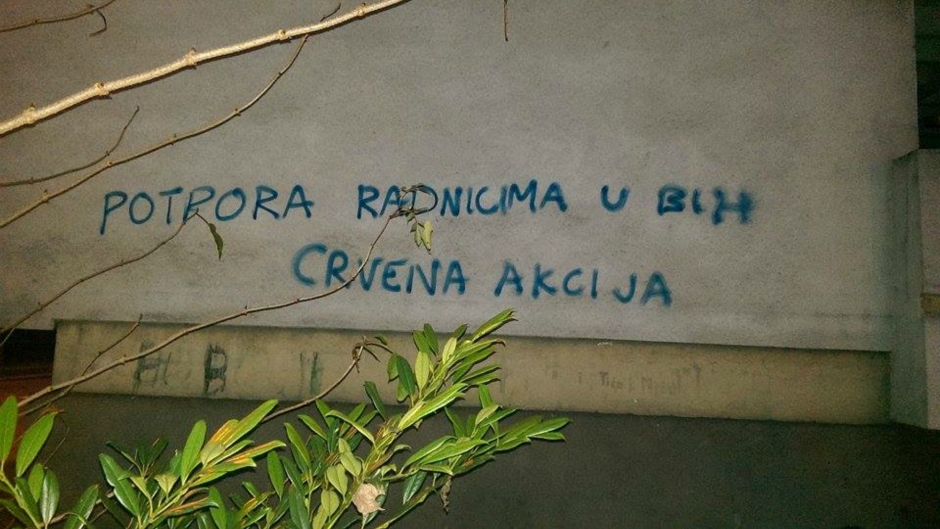 POTPORA RADNICIMA U BIH
CRVENA AKCIJA